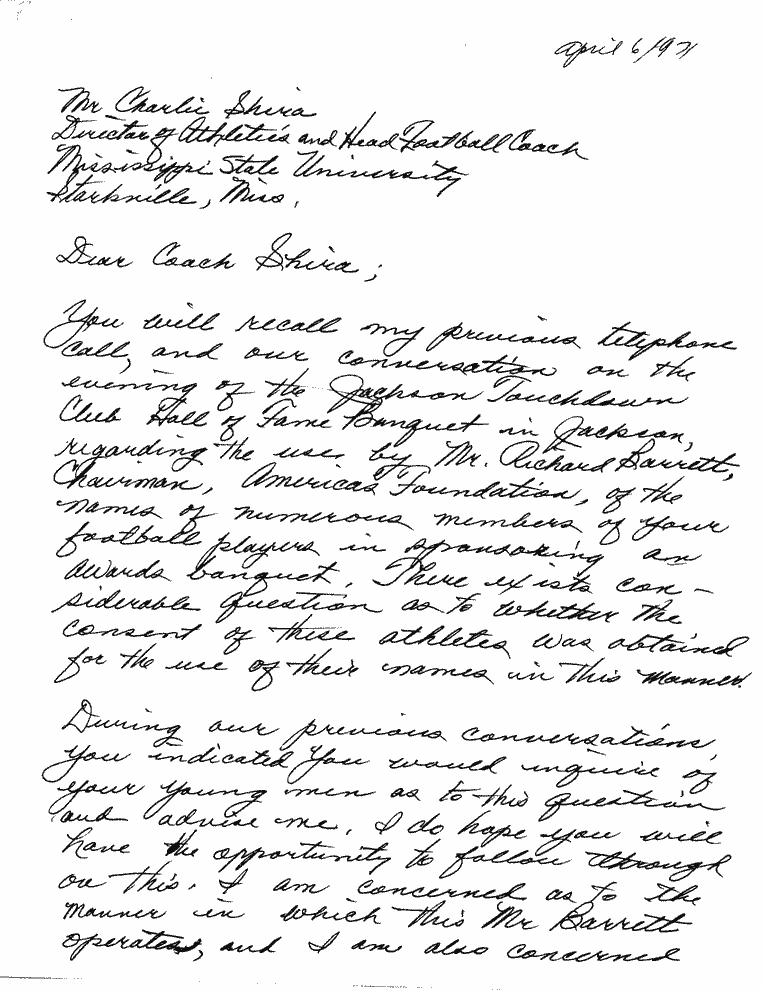 April 6/971
Mr Charlie Shira
Director of Athletics and Head Football Coach
Mississippi State University
Starkville, Miss.
Dear Coach Shira;
You will recall my previous telephone
call, and our conversation on the
evening of the Jackson Touchdown
Club Hall of Fame Banquet in Jackson,
regarding the use, by Mr. Richard Barrett,
Chairman, America's Foundation, of the
names of numerous members of your
football players in sponsoring an
awards banquet. There exists con-
siderable question as to whether the
consent of these athletes was obtained
for the use of their names in this manner.
During our previous conversations,
you indicated you would inquire of
your young men as to this question
and advise me. I do hope you will
have the opportunity to follow through
on this. I am concerned as to the
manner in which this Mr Barrett
operates, and I am also concerned